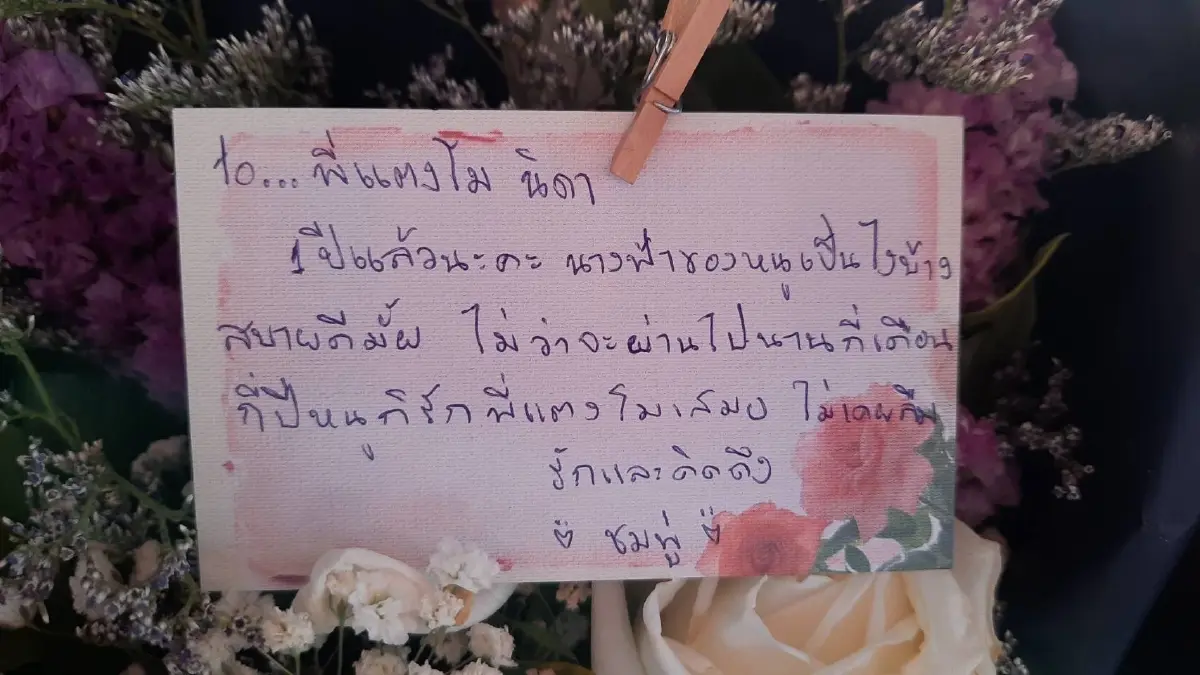 to... พี่แตงโม นิดา
1 ปีแล้วนะคะ นางฟ้าของหนูเป็นไงบ้าง
สบายดีมั้ย ไม่ว่าจะผ่านไปนานกี่เดือน
กี่ปีหนูก็รักพี่แตงโมเสมอ ไม่เคยลืม
รักและคิดถึง
ชมพู่